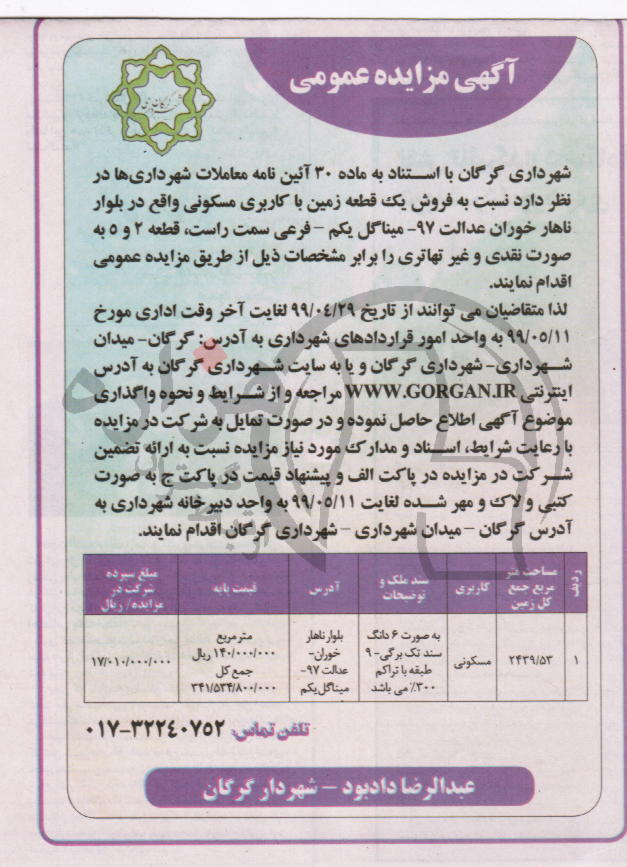 آگهی مزایده عمومی
شهرداری گرگان با استناد به ماده ۳۰ آئین نامه معاملات شهرداری‌ها در
نظر دارد نسبت به فروش یک قطعه زمین با کاربری مسکونی واقع در بلوار
ناهار خوران عدالت ۹۷- میناگل یکم – فرعی سمت راست، قطعه ۲ و ۵ به
صورت نقدی و غیر تهاتری را برابر مشخصات ذیل از طریق مزایده عمومی
اقدام نمایند.
لذا متقاضیان می توانند از تاریخ ۹۹/۰۴/۲۹ لغایت آخر وقت اداری مورخ
۹۹/۰۵/۱۱ به واحد امور قراردادهای شهرداری به آدرس: گرگان- میدان
شهرداری- شهرداری گرگان و یا به سایت شهرداری گرگان به آدرس
اینترنتی WWW.GORGAN.IR مراجعه و از شرایط و نحوه واگذاری
موضوع آگهی اطلاع حاصل نموده و در صورت تمایل به شرکت در مزایده
با رعایت شرایط، اسناد و مدارک مورد نیاز مزایده نسبت به ارائه تضمین
شرکت در مزایده در پاکت الف و پیشنهاد قیمت در پاکت ج به صورت
کتبی و لاک و مهر شده لغایت ۹۹/۰۵/۱۱ به واحد دبیرخانه شهرداری به
آدرس گرگان – میدان شهرداری – شهرداری گرگان اقدام نمایند.
ردیف
مساحت متر
مربع جمع
کل زمین
کاربری
سند ملک و
توضیحات
آدرس
قیمت پایه
مبلغ سپرده
شرکت در
مزایده/ ریال
۱
۲۴۳۹/۵۳
مسکونی
به صورت ۶ دانگ
سند تک برگی- ۹
طبقه با تراکم
۳۰۰٪ می باشد
بلوار ناهار
خوران-
عدالت ۹۷-
میناگل یکم
متر مربع
۱۴۰/۰۰۰/۰۰۰ ریال
جمع کل
۳۴۱/۵۳۴/۸۰۰/۰۰۰
۱۷/۰۱۰/۰۰۰/۰۰۰
تلفن تماس: ۳۲۲۴۰۷۵۲-۰۱۷
عبدالرضا دادبود – شهردار گرگان
هزاره